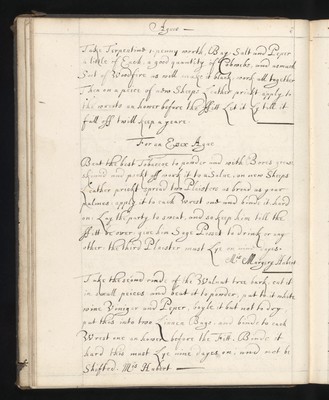 Agues
Take Turpentine 1 penny worth, Bay Salt and Peper
a little of Each, a good quantity of Cobwebs, and as much
Soot of Woodfire as will make it black, work all together
then on a peice of new Sheeps Leather prickt apply to
the wrests an hower before the ffitt Let it Ly till it
fall off twill keep a yeare.
For an Ague
Beat the best Tobacco to powder and with Bores grease
and prickt off work it to a Salve, on new Sheeps
Leather prickt spread two Pleisters as broad as your
palmes apply it to each Wrest and binde it hard
on. Lay the party to sweat, and so keep him till the
ffitt be over, give him Sage Posset to drink or any
other: the third Pleister must Lye on nine dayes.
Mrs Margery Habert
Take the second rinde of the Walnut tree bark, cut it
in small peices and beat it to powder, put to it white
wine Viniger and Peper, boyle it but not to dry
put this into two Linnen Bags, and binde to each
Wrest one an hower before the Fitt, Binde it
hard this must Lye nine dayes on, need not be
Shifted. Mrs Habert